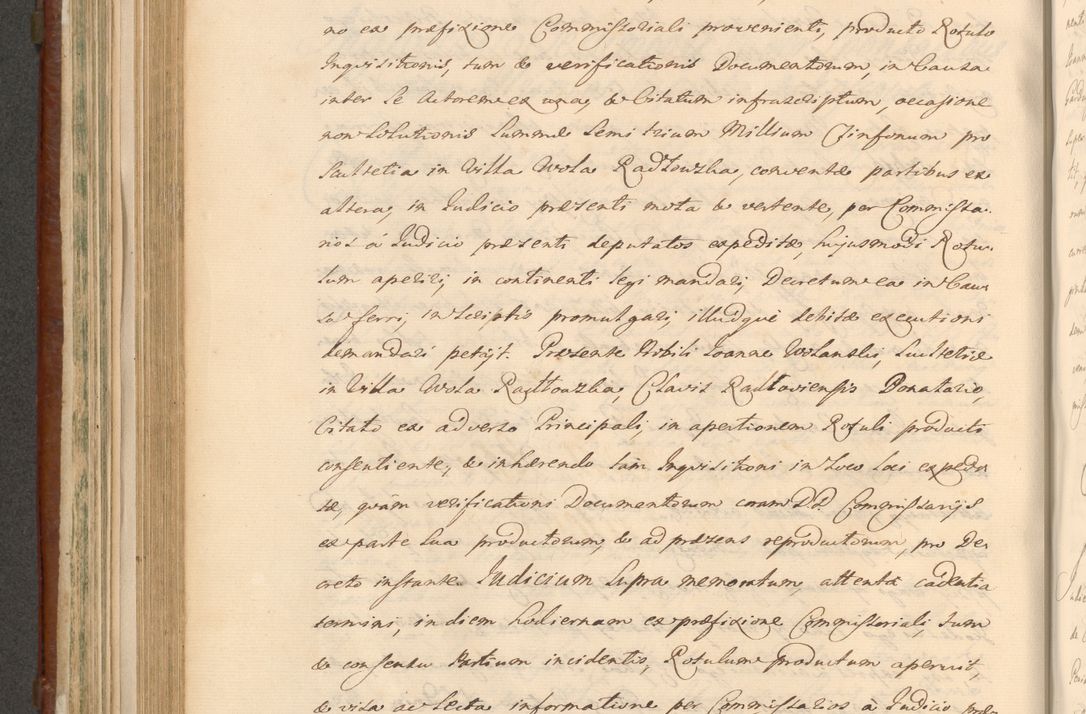 no ex præfixione Commissoriali provenienti, producto Rotulo
Inquisitionis, tum & verificationis Documentorum, in Causa
inter Se Actorem ex una, & Citatum infrascriptum, occasione
non Solutionis Summæ Semi trium Millium Tinfonum pro
Scultetia in Villa Wola Radłowska, conventæ partibus ex
altera, in Judicio præsenti mota & vertente, per Commissa-
rios á Judicio præsenti deputatos expeditæ, hujusmodi Rotu-
lum aperiri, in continenti legi mandari, Decretum ex in Cau-
sa ferri, in Scriptis promulgari, illudque debitæ executioni
demandari petijt. Præsente Nobili Joanne Wolanski, Scultetiæ
in Villa Wola Radłowska, Clavis Radłoviensis Donatario,
Citato ex adverso Principali, in apertionem Rotuli producti
consentiente, & inhærendo tam Inquisitioni in Loco Loci expedi-
tæ, quàm verificationi Documentorum coram DD Commissarijs
ex parte Sua productorum, & ad præsens reproductorum, pro De-
creto instante. Judicium Supra memoratum, attenta cadentia
termini, in diem hodiernam ex præfixione Commissoriali, tum
& consensu Partium incidentis, Rotulum productum aperuit,
& visa ac Lecta informatione per Commissarios à Judicio